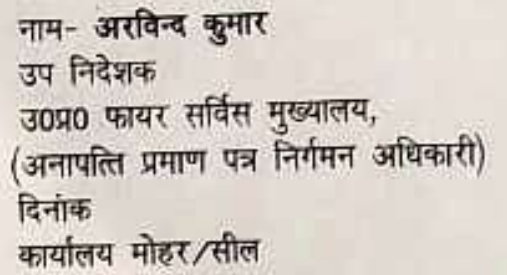 नाम- अरविन्द कुमार
उप निदेशक
उ0प्र0 फायर सर्विस मुख्यालय,
(अनापत्ति प्रमाण पत्र निर्गमन अधिकारी)
दिनांक
कार्यालय मोहर/सील